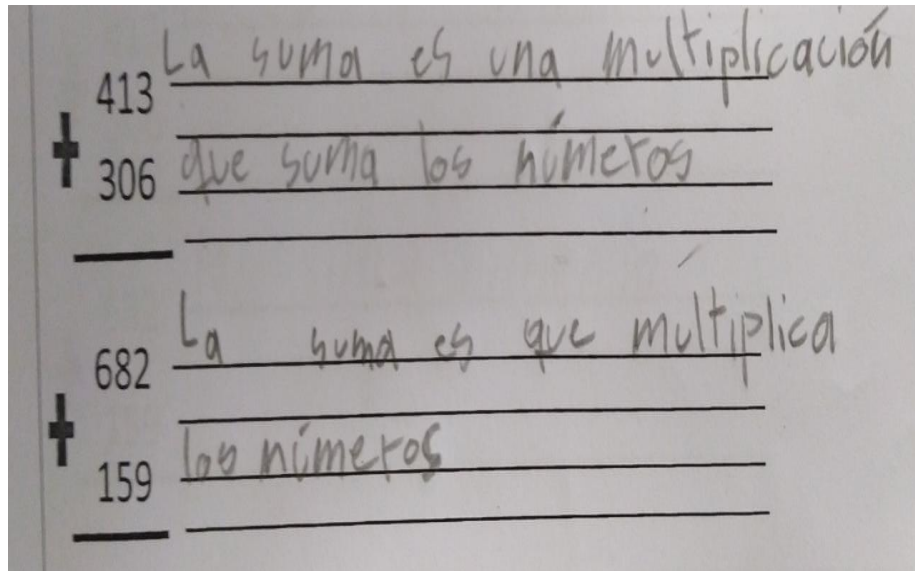 La suma es una multiplicación
413
+
que suma los números
306
La suma es que multiplica
682
+
los números
159